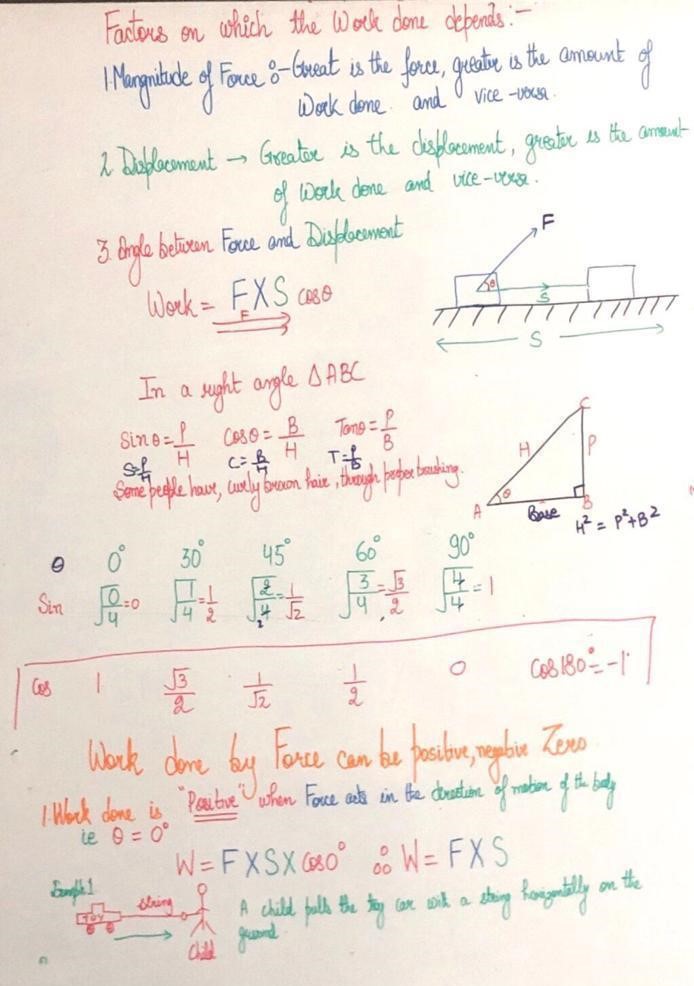 Factors on which the Work done depends:-
1. Mangnitude of Force :- Great is the force, greater is the amount of
Work done. and vice-versa.
2. Displacement → Greater is the displacement, greater is the amount
of Work done and vice-versa.
3. Angle between Force and Displacement
F
θ
S
S
Work = F X S cosθ
F
In a right angle ΔABC
Sinθ = P/H Cosθ = B/H Tanθ = P/B
S = P/H C = B/H T = P/B
Some people have, curly brown hair, through proper brushing.
C
H
P
θ
A
Base
B
H² = P²+B²
θ 0° 30° 45° 60° 90°
Sin √0/4 = 0 √1/4 = 1/2 √2/4 2 = 1/√2 √3/4 = √3/2 √4/4 = 1
Cos 1 √3/2 1/√2 1/2 0 Cos 180° = -1
Work done by Force can be positive, negative Zero
1. Work done is "Positive" when Force acts in the direction of motion of the body
ie θ = 0°
W = F X S X Cos 0° ∴ W = F X S
1
TOY
string
Child
A child pulls the toy car with a string horizontally on the
ground